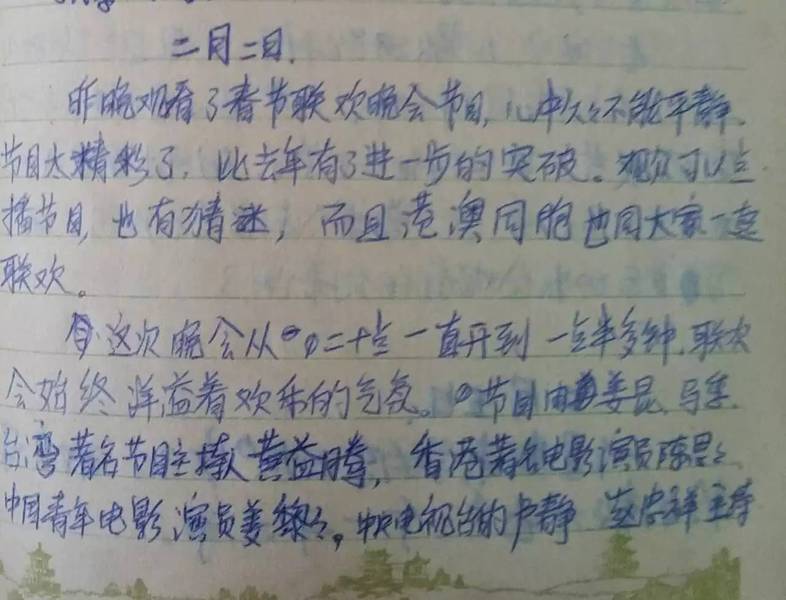 二月二日.
昨晚观看了春节联欢晚会节目,心中久久不能平静.
节目太精彩了,比去年有了进一步的突破。观众可以点
播节目,也有猜迷,而且港澳同胞也同大家一直
联欢。
这次晚会从二十点一直开到一点半多钟,联欢
会始终洋溢着欢乐的气氛。节目由姜昆、马季.
台湾著名节目主持人黄益腾,香港著名电影演员陈思思
中国青年电影演员姜黎黎。中央电视台的卢静 赵忠祥主持